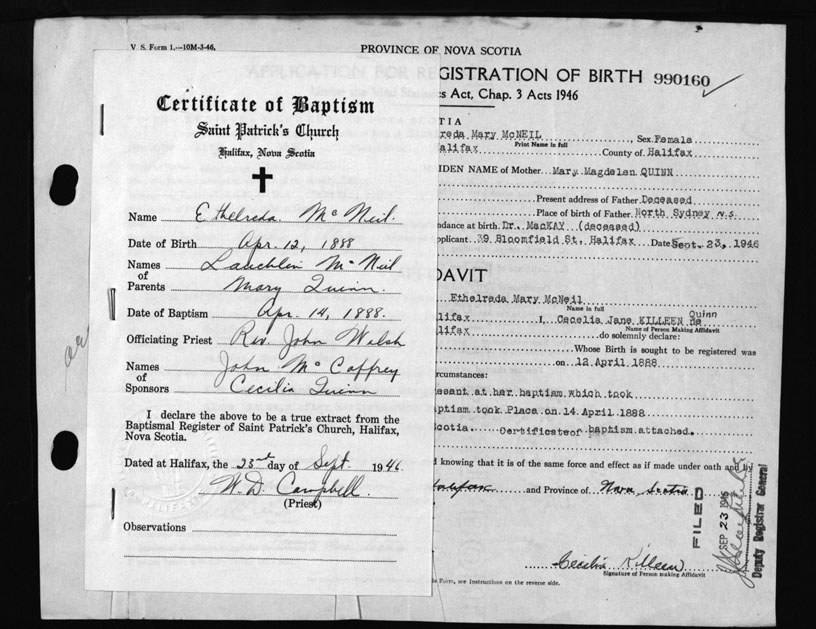 V. S. Form 1.—10M-3-46.
PROVINCE OF NOVA SCOTIA
GISTRATION OF BIRTH 990160
s Act, Chap. 3 Acts 1946
Certificate of Baptism
Saint Patrick's Church
Halifax, Nova Scotia
Name Ethelreda McNeil.
Date of Birth Apr. 12, 1888
Names of Parents Lauchlin McNeil
Mary Quinn.
Date of Baptism Apr. 14, 1888.
Officiating Priest Rev. John Walsh
Names of Sponsors John McCaffrey
Cecilia Quinn
I declare the above to be a true extract from the
Baptismal Register of Saint Patrick's Church, Halifax,
Nova Scotia.
Dated at Halifax, the 23rd day of Sept. 1946.
W. D. Campbell.
(Priest)
Observations
TIA
elreda Mary McNEIL, Sex Female
Print Name in full
alifax County of Halifax
IDEN NAME of Mother Mary Magdelen QUINN
Present address of Father Deceased
Place of birth of Father North Sydney N.S.
ndance at birth Dr. MacKAY (deceased)
pplicant 39 Bloomfield St. Halifax Date Sept. 23, 1946
DAVIT
Ethelreda Mary McNeil
Name in full
alifax I, Cecelia Jane KILLEEN Quinn
Name of Person Making Affidavit
lifax do solemnly declare:
Whose Birth is sought to be registered was
on 12 April 1888
rcumstances:
esent at her baptism which took
ptism took Place on 14 April 1888
cotia. Certificate of baptism attached.
d knowing that it is of the same force and effect as if made under oath and by
Halifax and Province of Nova Scotia
FILED
SEP 23 1946
Deputy Registrar General
Cecilia Killeen
Signature of Person making Affidavit
Form, see Instructions on the reverse side.